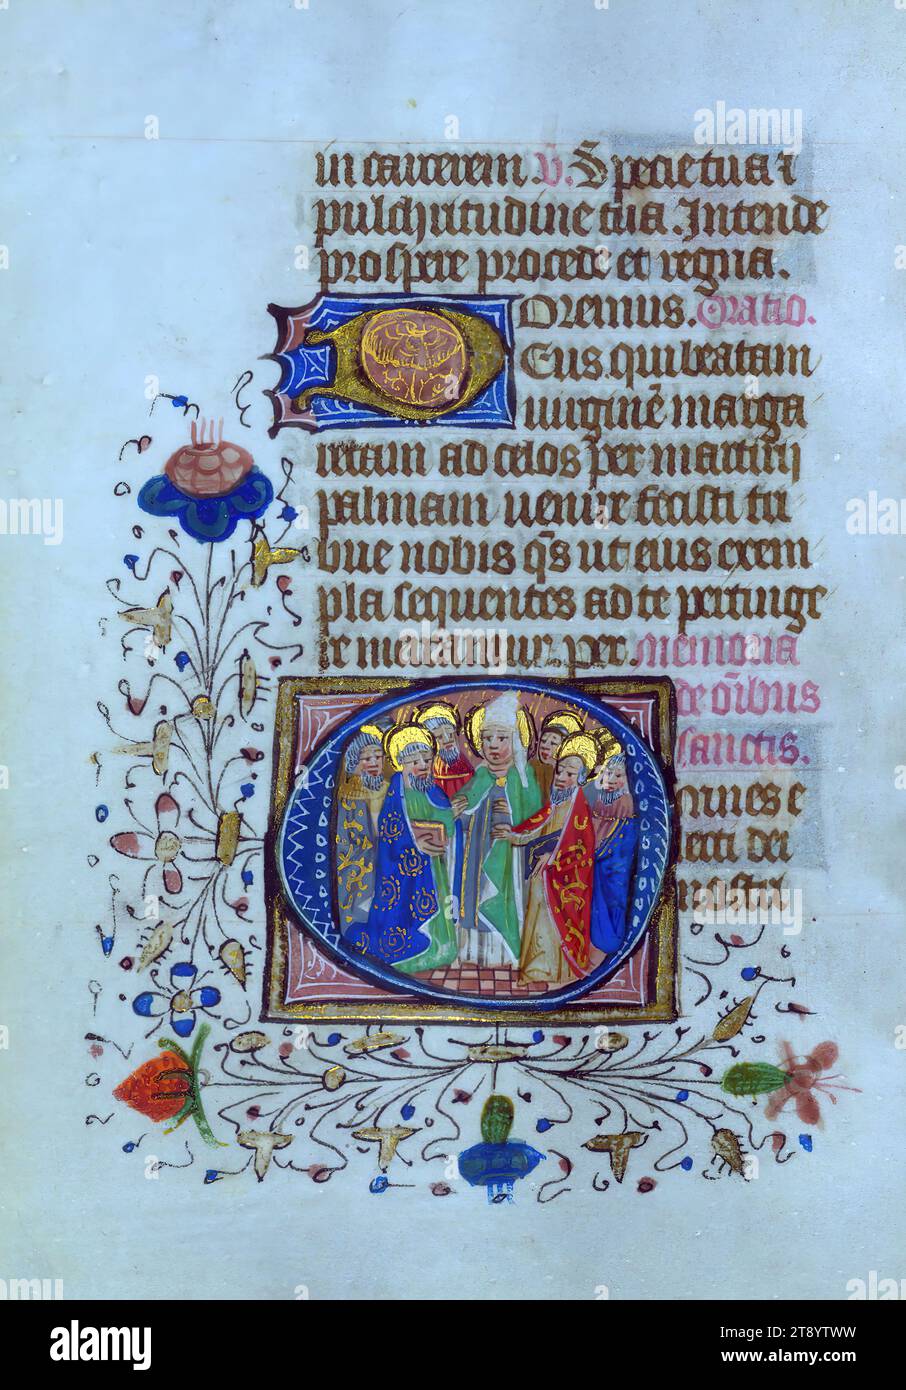 in carcerem. V. Specie tua ⁊
pulchritudine tua. Intende
prospere procede et regna.
Oremus. Oratio.
Deus qui beatam
virginē marga
retam ad celos per martirij
palmam venire fecisti tri
bue nobis q̄s ut eius exem
pla sequentes ad te pertinge
re mereamur. per. Memoria
de oībus
sanctis.
Omnes e
lecti dei
nostri
alamy
Image ID: 2T8YTWW
www.alamy.com